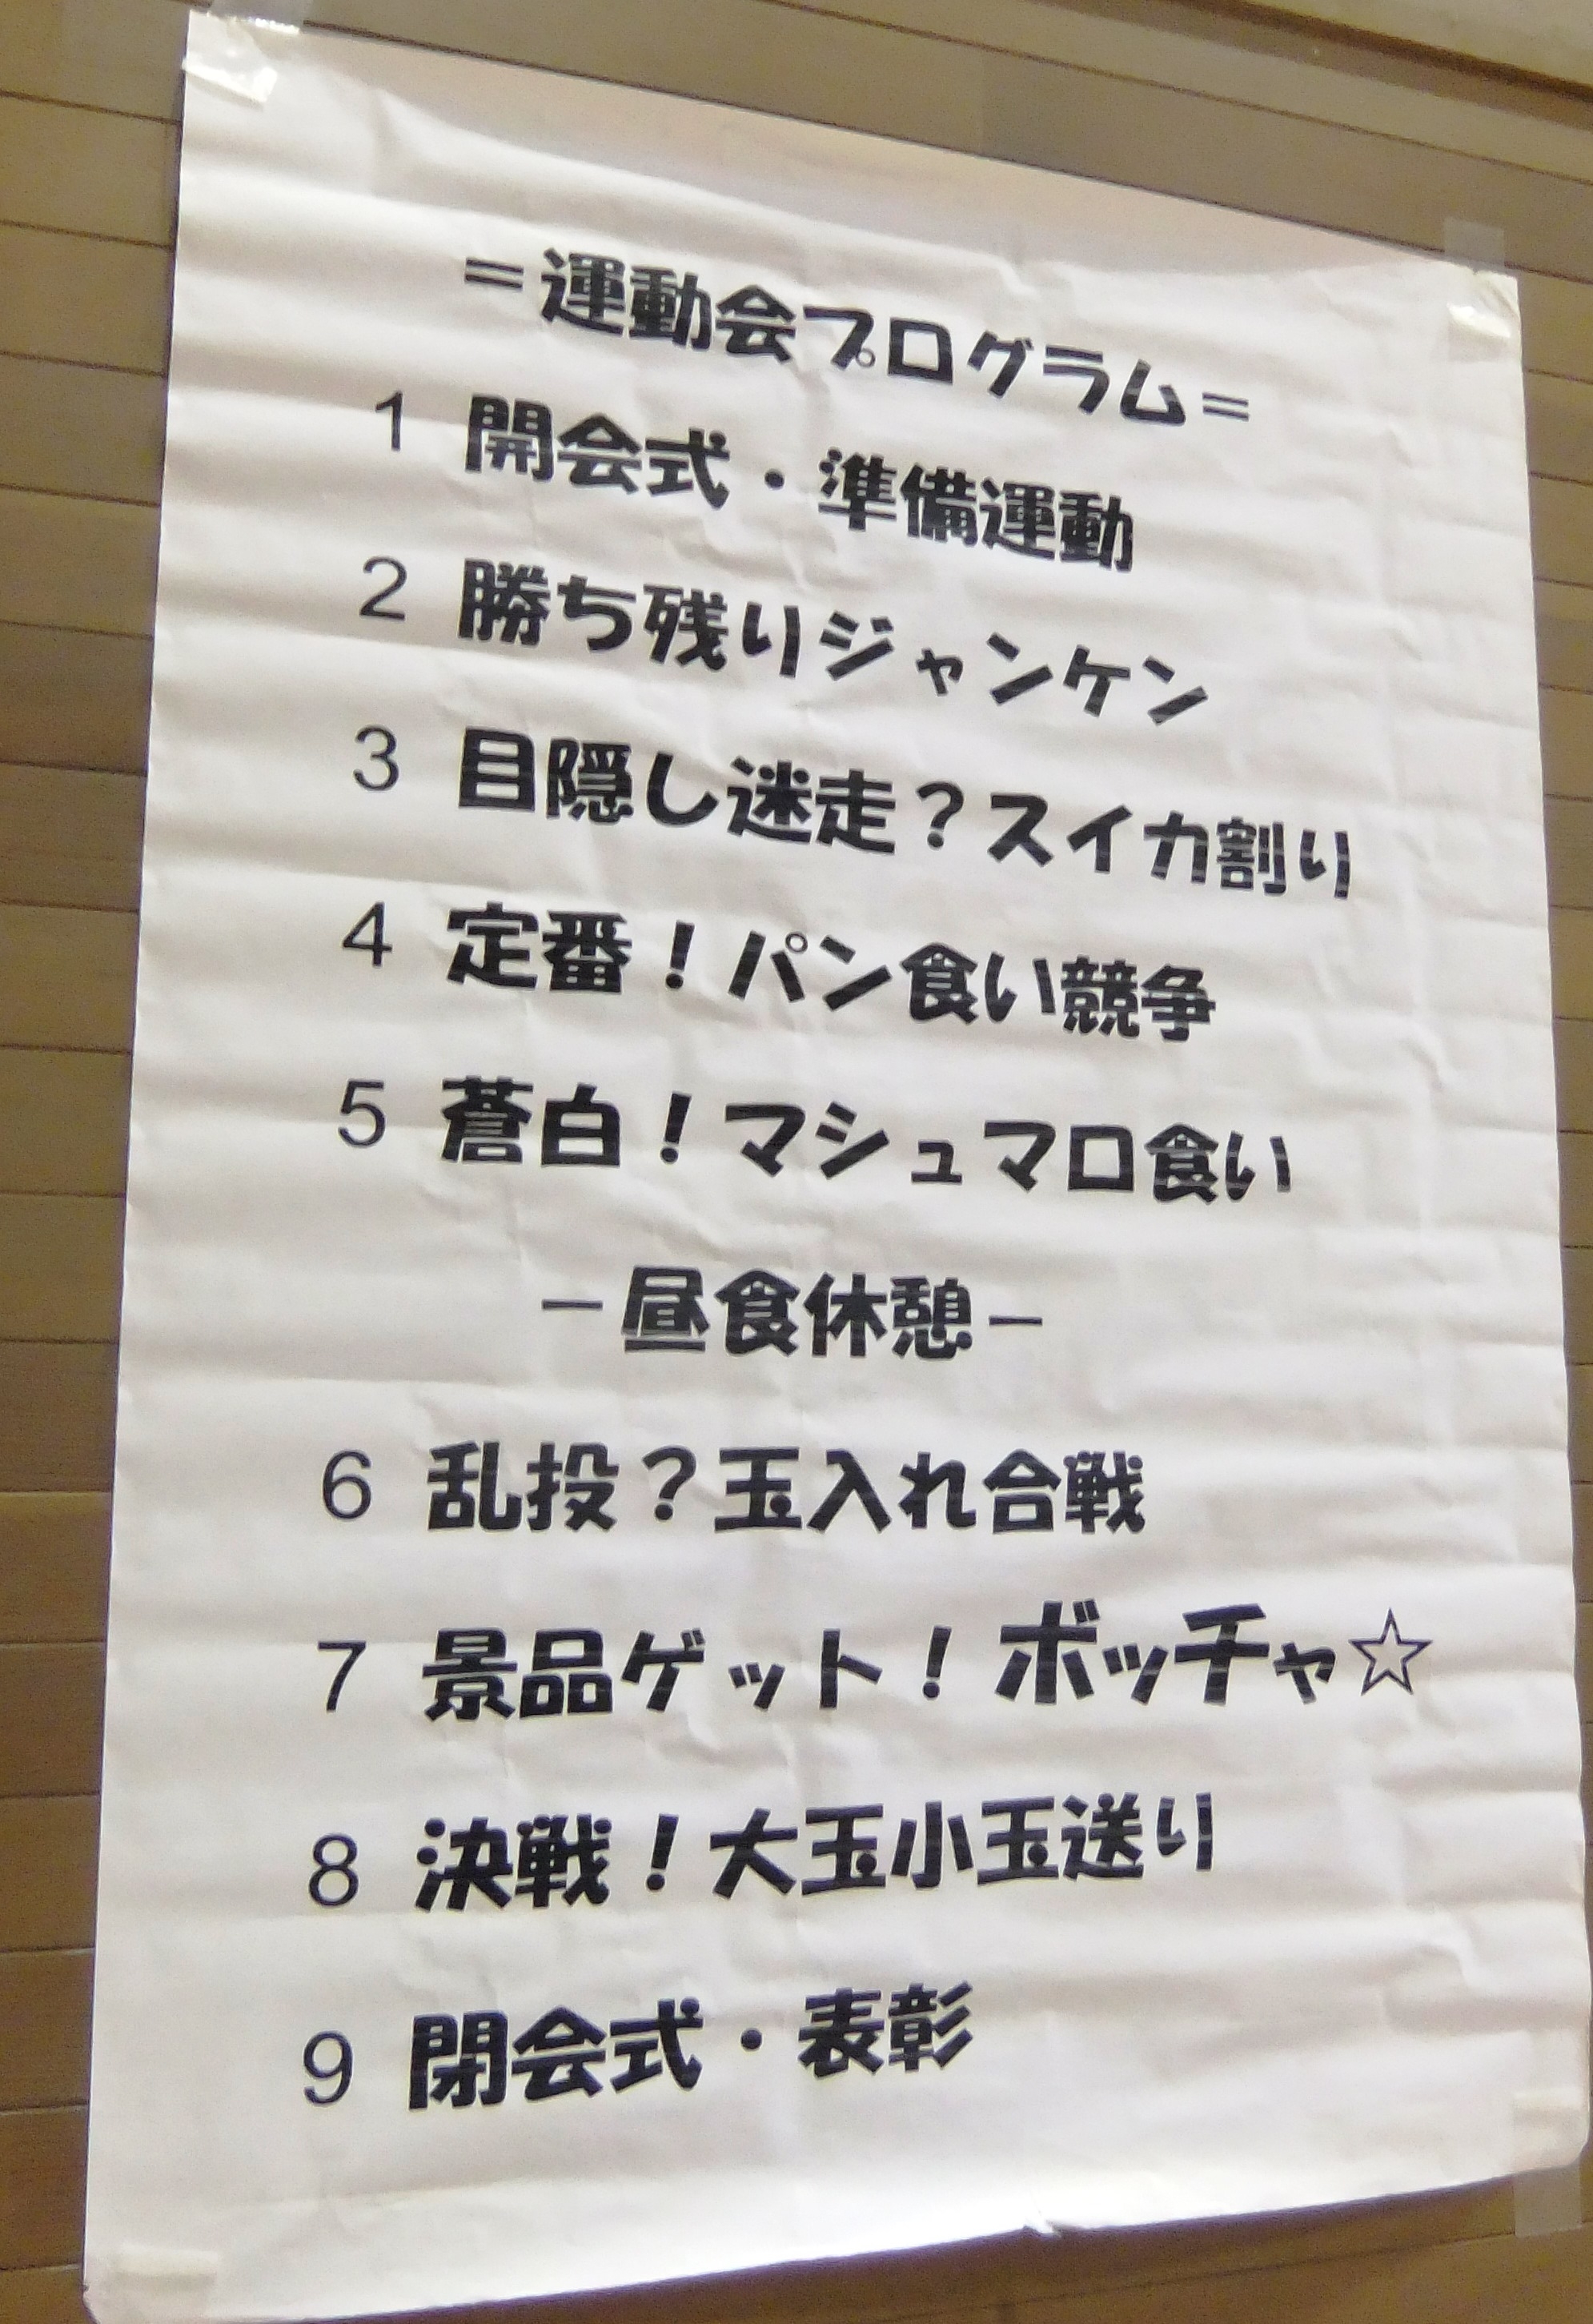 =運動会プログラム=
1 開会式・準備運動
2 勝ち残りジャンケン
3 目隠し迷走？スイカ割り
4 定番！パン食い競争
5 蒼白！マシュマロ食い
－昼食休憩－
6 乱投？玉入れ合戦
7 景品ゲット！ボッチャ☆
8 決戦！大玉小玉送り
9 閉会式・表彰